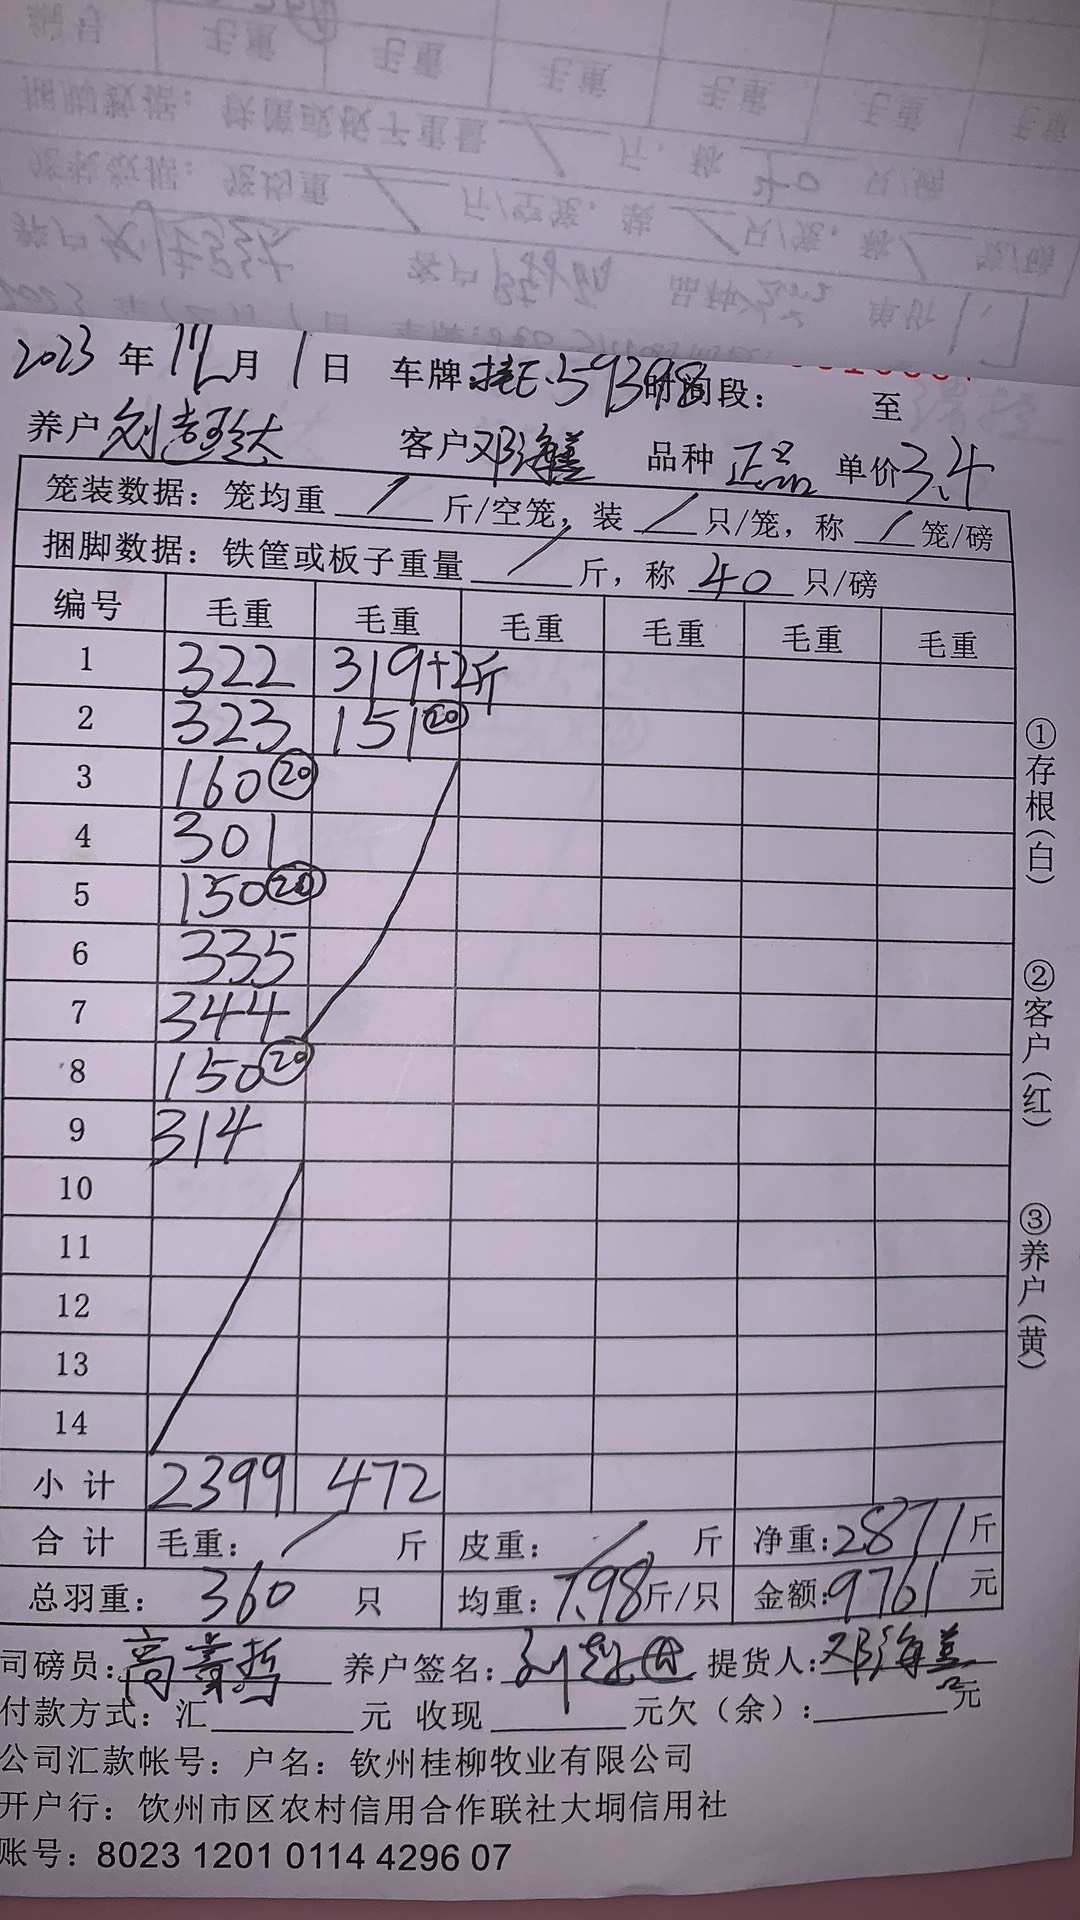 2023 年 12 月 1 日 车牌:桂E·59398 时间段: 至
养户 刘 客户 邓海 品种 正品 单价 3.4
笼装数据：笼均重 / 斤/空笼，装 / 只/笼，称 / 笼/磅
捆脚数据：铁筐或板子重量 / 斤，称 40 只/磅
编号 毛重 毛重 毛重 毛重 毛重 毛重
1 322 319+2斤
2 323 151 ⑳
3 160 ⑳
4 301
5 150 ⑳
6 335
7 344
8 150 ⑳
9 314
10
11
12
13
14
小计 2399 472
合计 毛重： / 斤 皮重： / 斤 净重:2871斤
总羽重： 360 只 均重：7.98斤/只 金额:9761 元
司磅员:高 养户签名:刘 提货人:邓海
付款方式：汇 元 收现 元欠（余）: 元
公司汇款帐号：户名：钦州桂柳牧业有限公司
开户行：钦州市区农村信用合作联社大垌信用社
账号：8023 1201 0114 4296 07
①存根(白)
②客户(红)
③养户(黄)